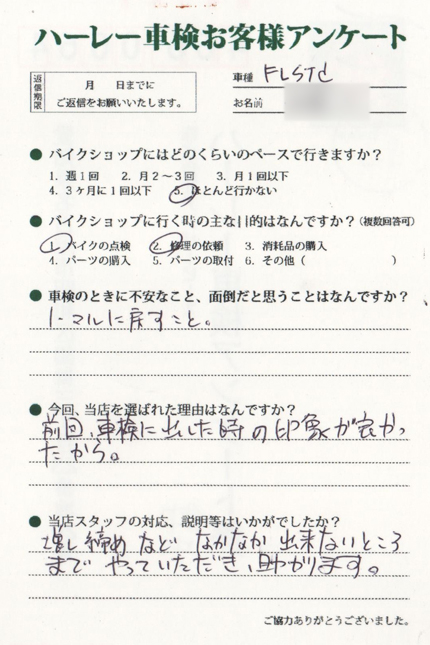 ハーレー車検お客様アンケート
返信期限
月 日までに
ご返信をお願いいたします。
車種 FLSTC
お名前
● バイクショップにはどのくらいのペースで行きますか?
1. 週1回 2. 月2〜3回 3. 月1回以下
4. 3ヶ月に1回以下 5. ほとんど行かない
● バイクショップに行く時の主な目的はなんですか?(複数回答可)
1. バイクの点検 2. 修理の依頼 3. 消耗品の購入
4. パーツの購入 5. パーツの取付 6. その他( )
● 車検のときに不安なこと、面倒だと思うことはなんですか?
ノーマルに戻すこと。
● 今回、当店を選ばれた理由はなんですか?
前回、車検に出した時の印象が良かっ
たから。
● 当店スタッフの対応、説明等はいかがでしたか?
増し締めなど なかなか出来ないところ
まで やっていただき、助かります。
ご協力ありがとうございました。